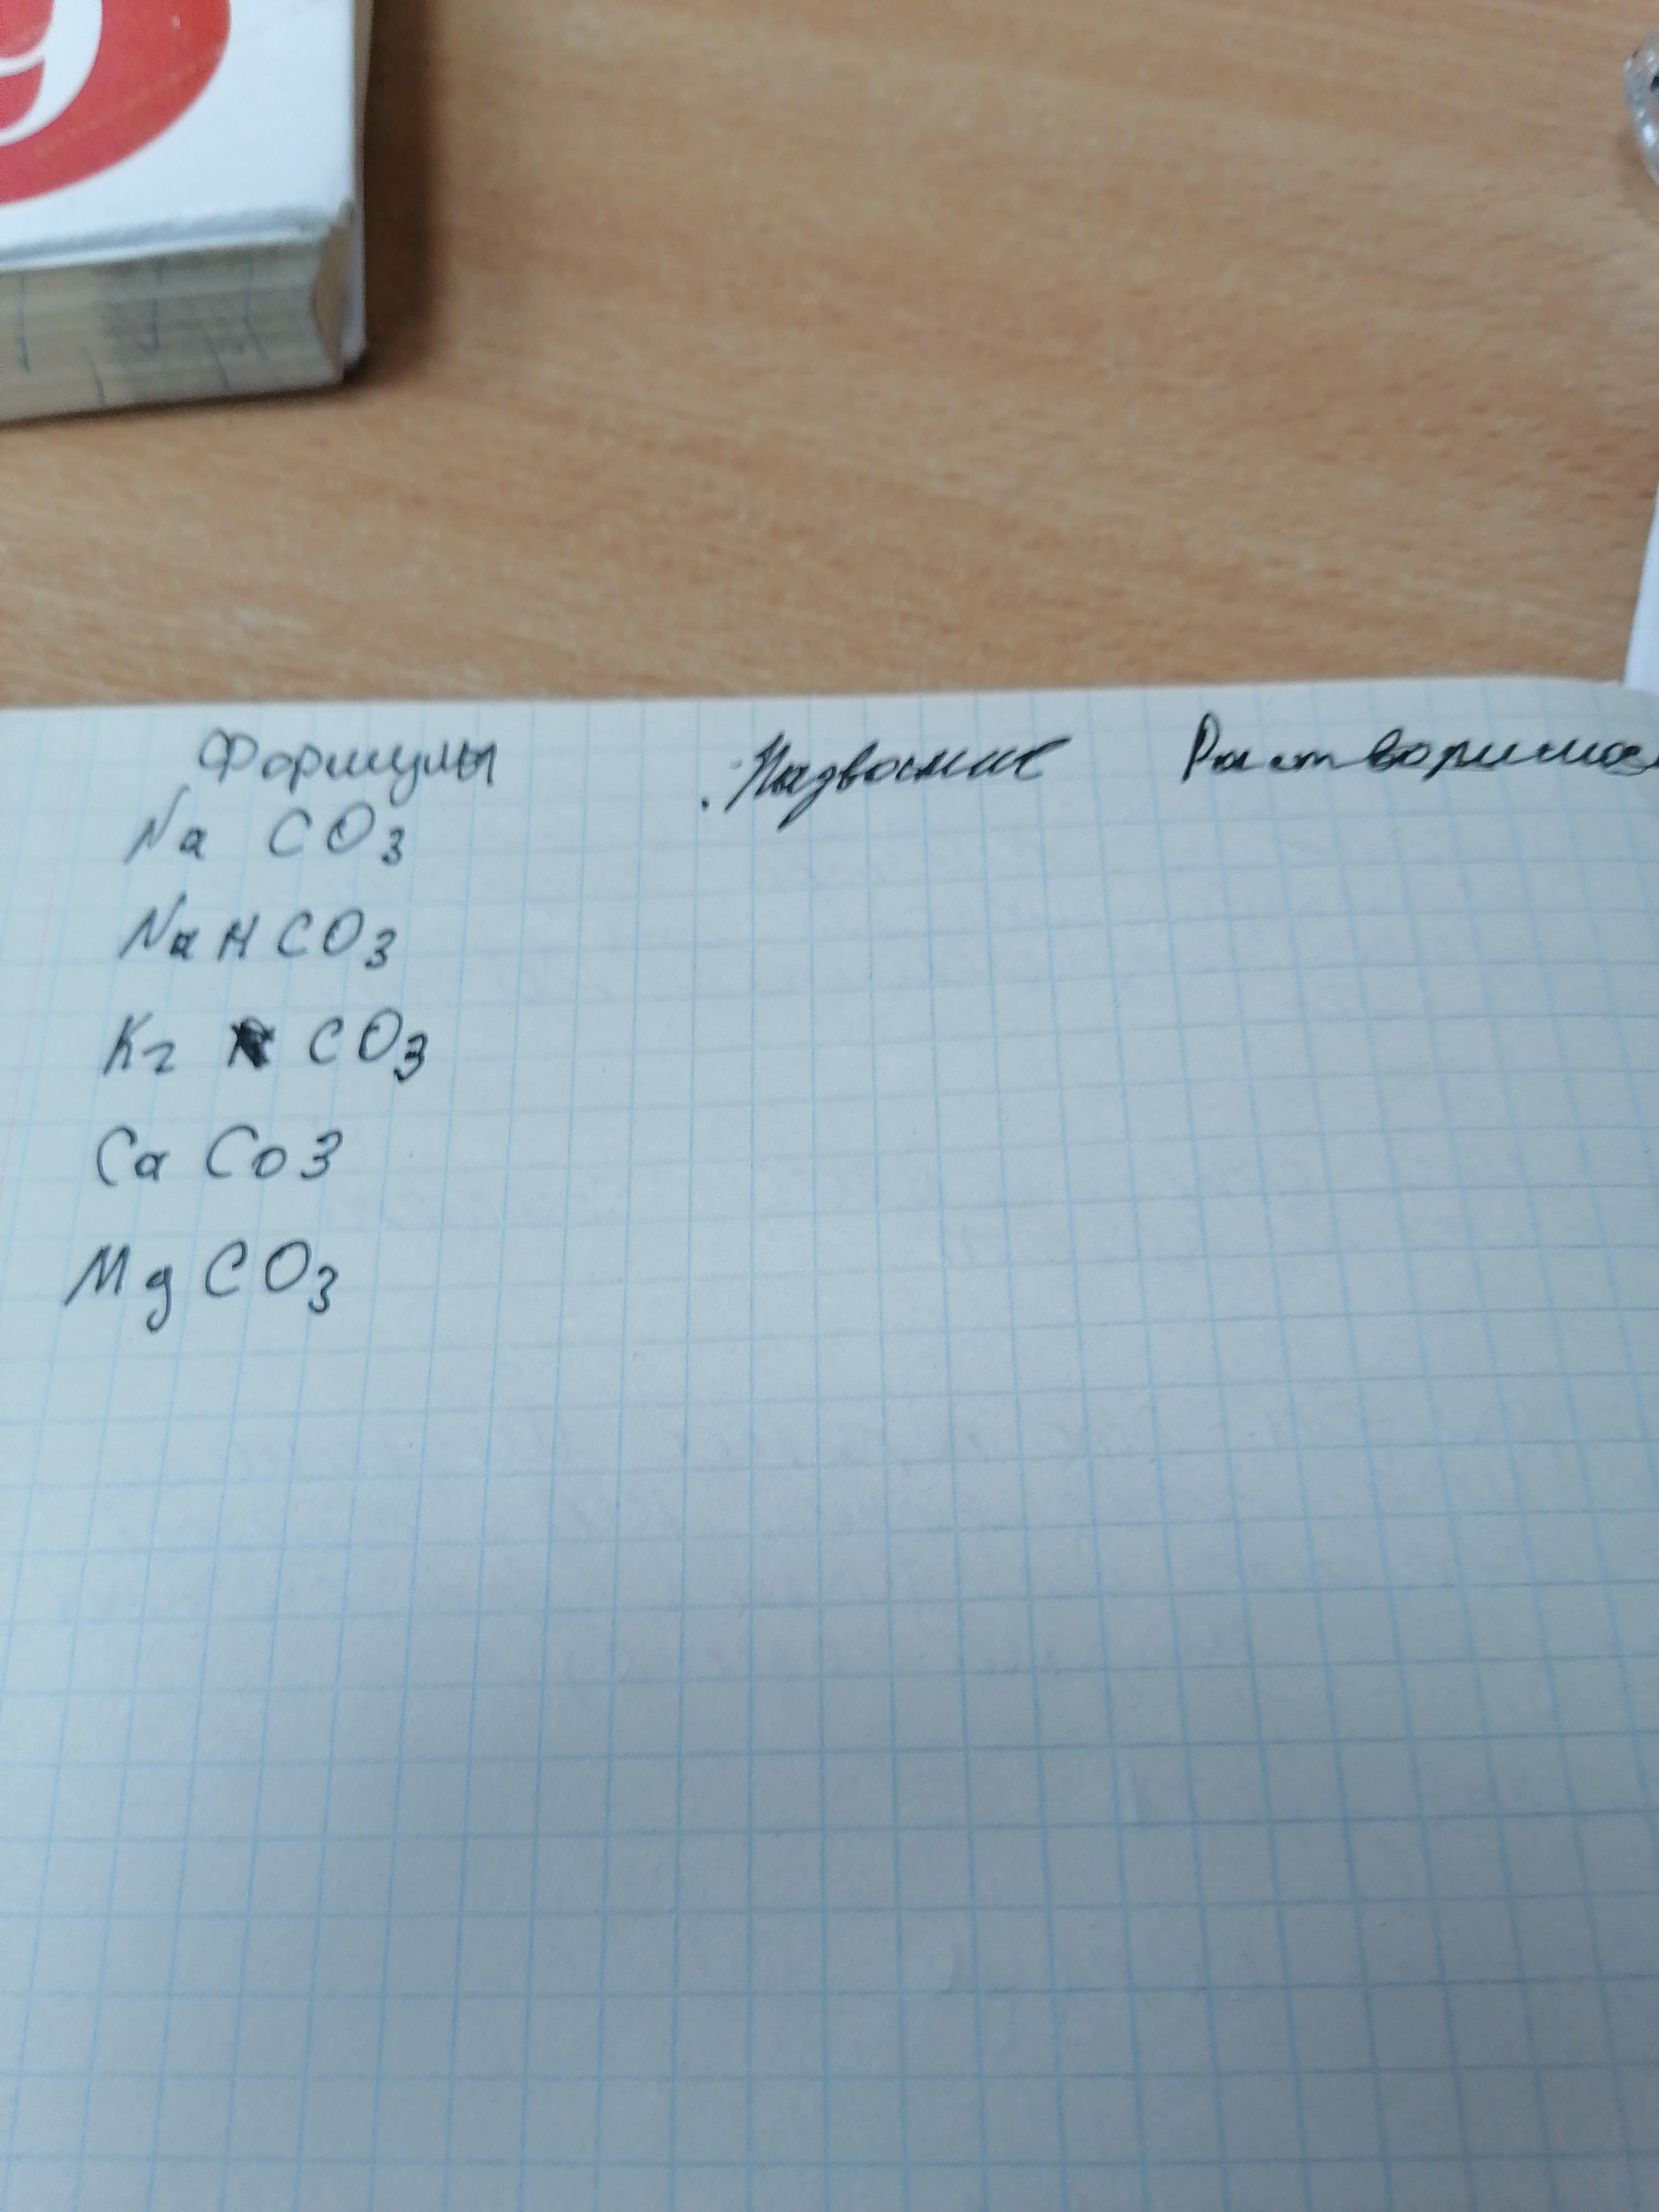 9
Формулы Название Растворимос
Na CO3
NaHCO3
K2 CO3
Ca Co3
MgCO3